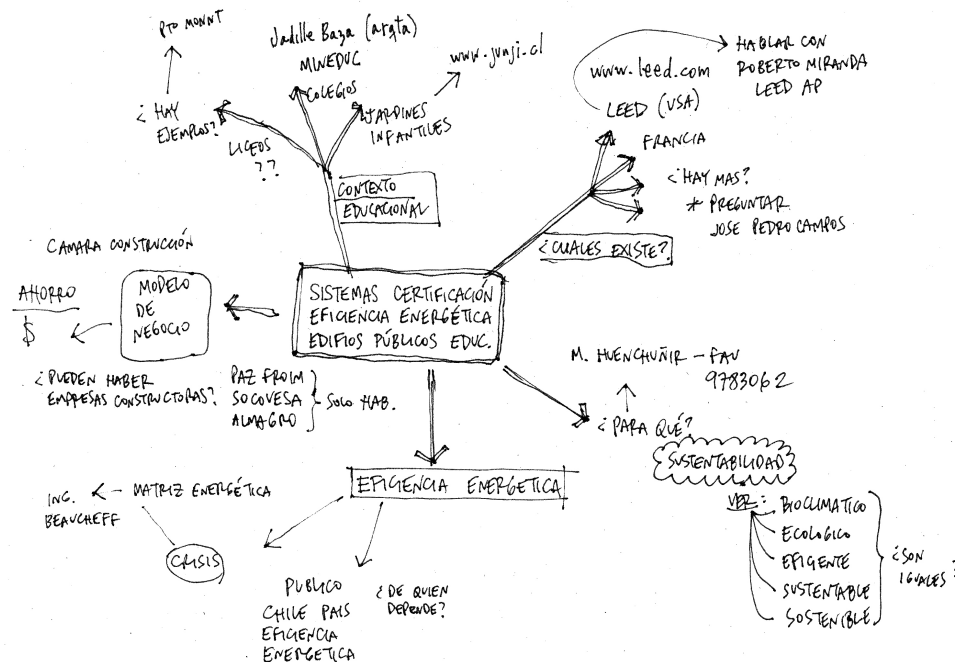 PTO MONNT
¿HAY
EJEMPLOS?
LICEOS
??
Jadille Baza (arqta)
MINEDUC
COLEGIOS
JARDINES
INFANTILES
www.junji.cl
CONTEXTO
EDUCACIONAL
www.leed.com
LEED (USA)
HABLAR CON
ROBERTO MIRANDA
LEED AP
FRANCIA
¿HAY MAS?
* PREGUNTAR
JOSE PEDRO CAMPOS
¿CUALES EXISTE?
CAMARA CONSTRUCCIÓN
AHORRO
$
MODELO
DE
NEGOCIO
SISTEMAS CERTIFICACIÓN
EFICIENCIA ENERGÉTICA
EDIFIOS PÚBLICOS EDUC.
¿PUEDEN HABER
EMPRESAS CONSTRUCTORAS?
PAZ FROIM
SOCOVESA
ALMAGRO
SOLO HAB.
M. HUENCHUÑIR - FAU
9783062
¿PARA QUÉ?
SUSTENTABILIDAD
VER:
BIOCLIMATICO
ECOLOGICO
EFIGENTE
SUSTENTABLE
SOSTENIBLE
¿SON
IGUALES?
EFICIENCIA ENERGETICA
ING. - MATRIZ ENERGÉTICA
BEAUCHEFF
CRISIS
PUBLICO
CHILE PAIS
EFICIENCIA
ENERGETICA
¿DE QUIEN
DEPENDE?